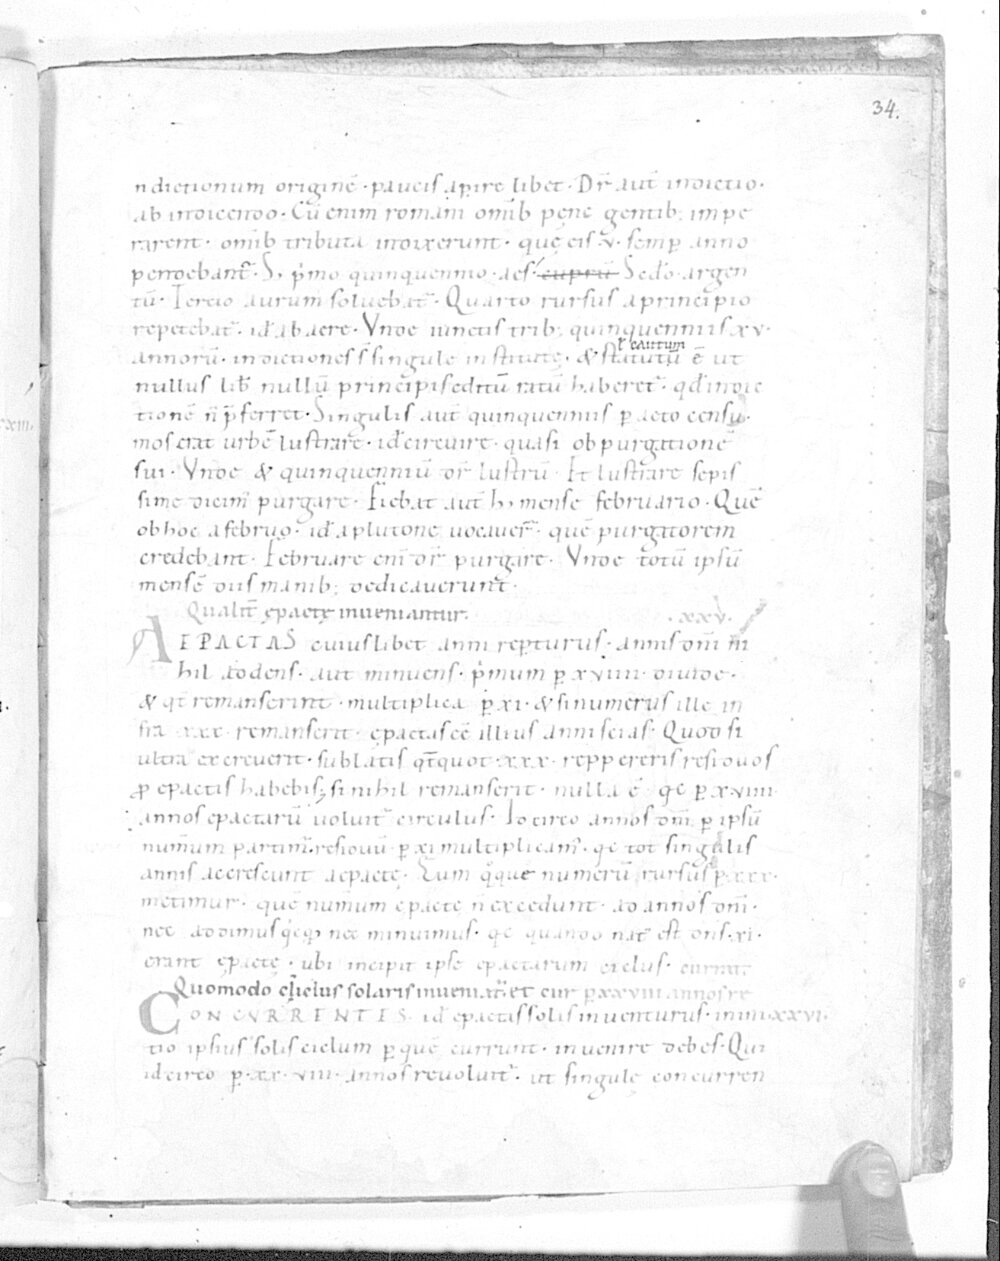 34.
ndictionum originē · paucis aperire libet · Dr̄ aut̄ indictio ·
ab indicendo · Cū enim romani omīb pene gentib; impe
rarent · omīb tributa indixerunt · quę eis · v · semp̱ anno
pendebant̄ · S; p̄mo quinquennio · aes cuprū Sed̄o · argen
tū · Tercio aurum soluebat̄ · Quarto rursus a principio
repetebat̄ · id̄ ab aere · Vnde iunctis trib; quinquenniis xv ·
ł cautum
annorū · indictiones s̄ singulę institutę · & statutū ē ut
nullus lib̄ nullū principis editū ratū haberet̄ · qd̄ indic
tionē n̄ p̄ferret · Singulis aut̄ quinquenniis p̱acto censu ·
mos erat urbē lustrare · id̄ circuire · quasi ob purgationē
sui · Vnde & quinquenniū dr̄ lustrū · Et lustrare sepis
sime dicim̄ purgare · Fiebat aut̄ h; mense februario · Quē
ob hoc a februo · id̄ a plutone uocauer̄ · quē purgatorem
credebant · Februare eni dr̄ purgare · Vnde totū ipsū
mensē diis manib; dedicauerunt ·
Qualit̄ epactę inueniantur · xxv ·
A EPACTAS cuiuslibet anni repturus · annis dn̄i ni
hil addens · aut minuens · p̄mum p̱ xviiii · diuide ·
& qd̄ remanserint · multiplica p̱ xi · & si numerus ille in
fra xxx · remanserit · epactas eē illius anni scias · Quod si
ultra excreuerit · sublatis qt̄quot · xxx · reppereris residuos
ꝓ epactis habebis; si nihil remanserit · nulla ē · qa p̱ xviiii
annos epactarū uoluit̄ circulus · Idcirco annos dn̄i p̱ ipsū
num̄um partim̄ · residuū p̱ xi multiplicam̄ · qa tot singulis
annis accrescunt aepactę · Cum q̊que numerū rursus p̱ xxx ·
metimur · quē num̄um epacte n̄ excedunt · ad annos dn̄i ·
nec addimus nec minuimus · qa quando nat̄ est dn̄s · xi ·
erant epactę · ubi incipit ipse epactarum ciclus ·
Quomodo ciclus solaris inueniat̄ et cur p̱ xxviii annos re
CONCVRRENTES · id̄ epactis solis inuenturus · inimi xxvi ·
tio ipsius solis ciclum p̱ quē currunt · inuenire debes · Qui
idcirco p̱ · xx · viii · annos reuoluit̄ · ut singulę concurren